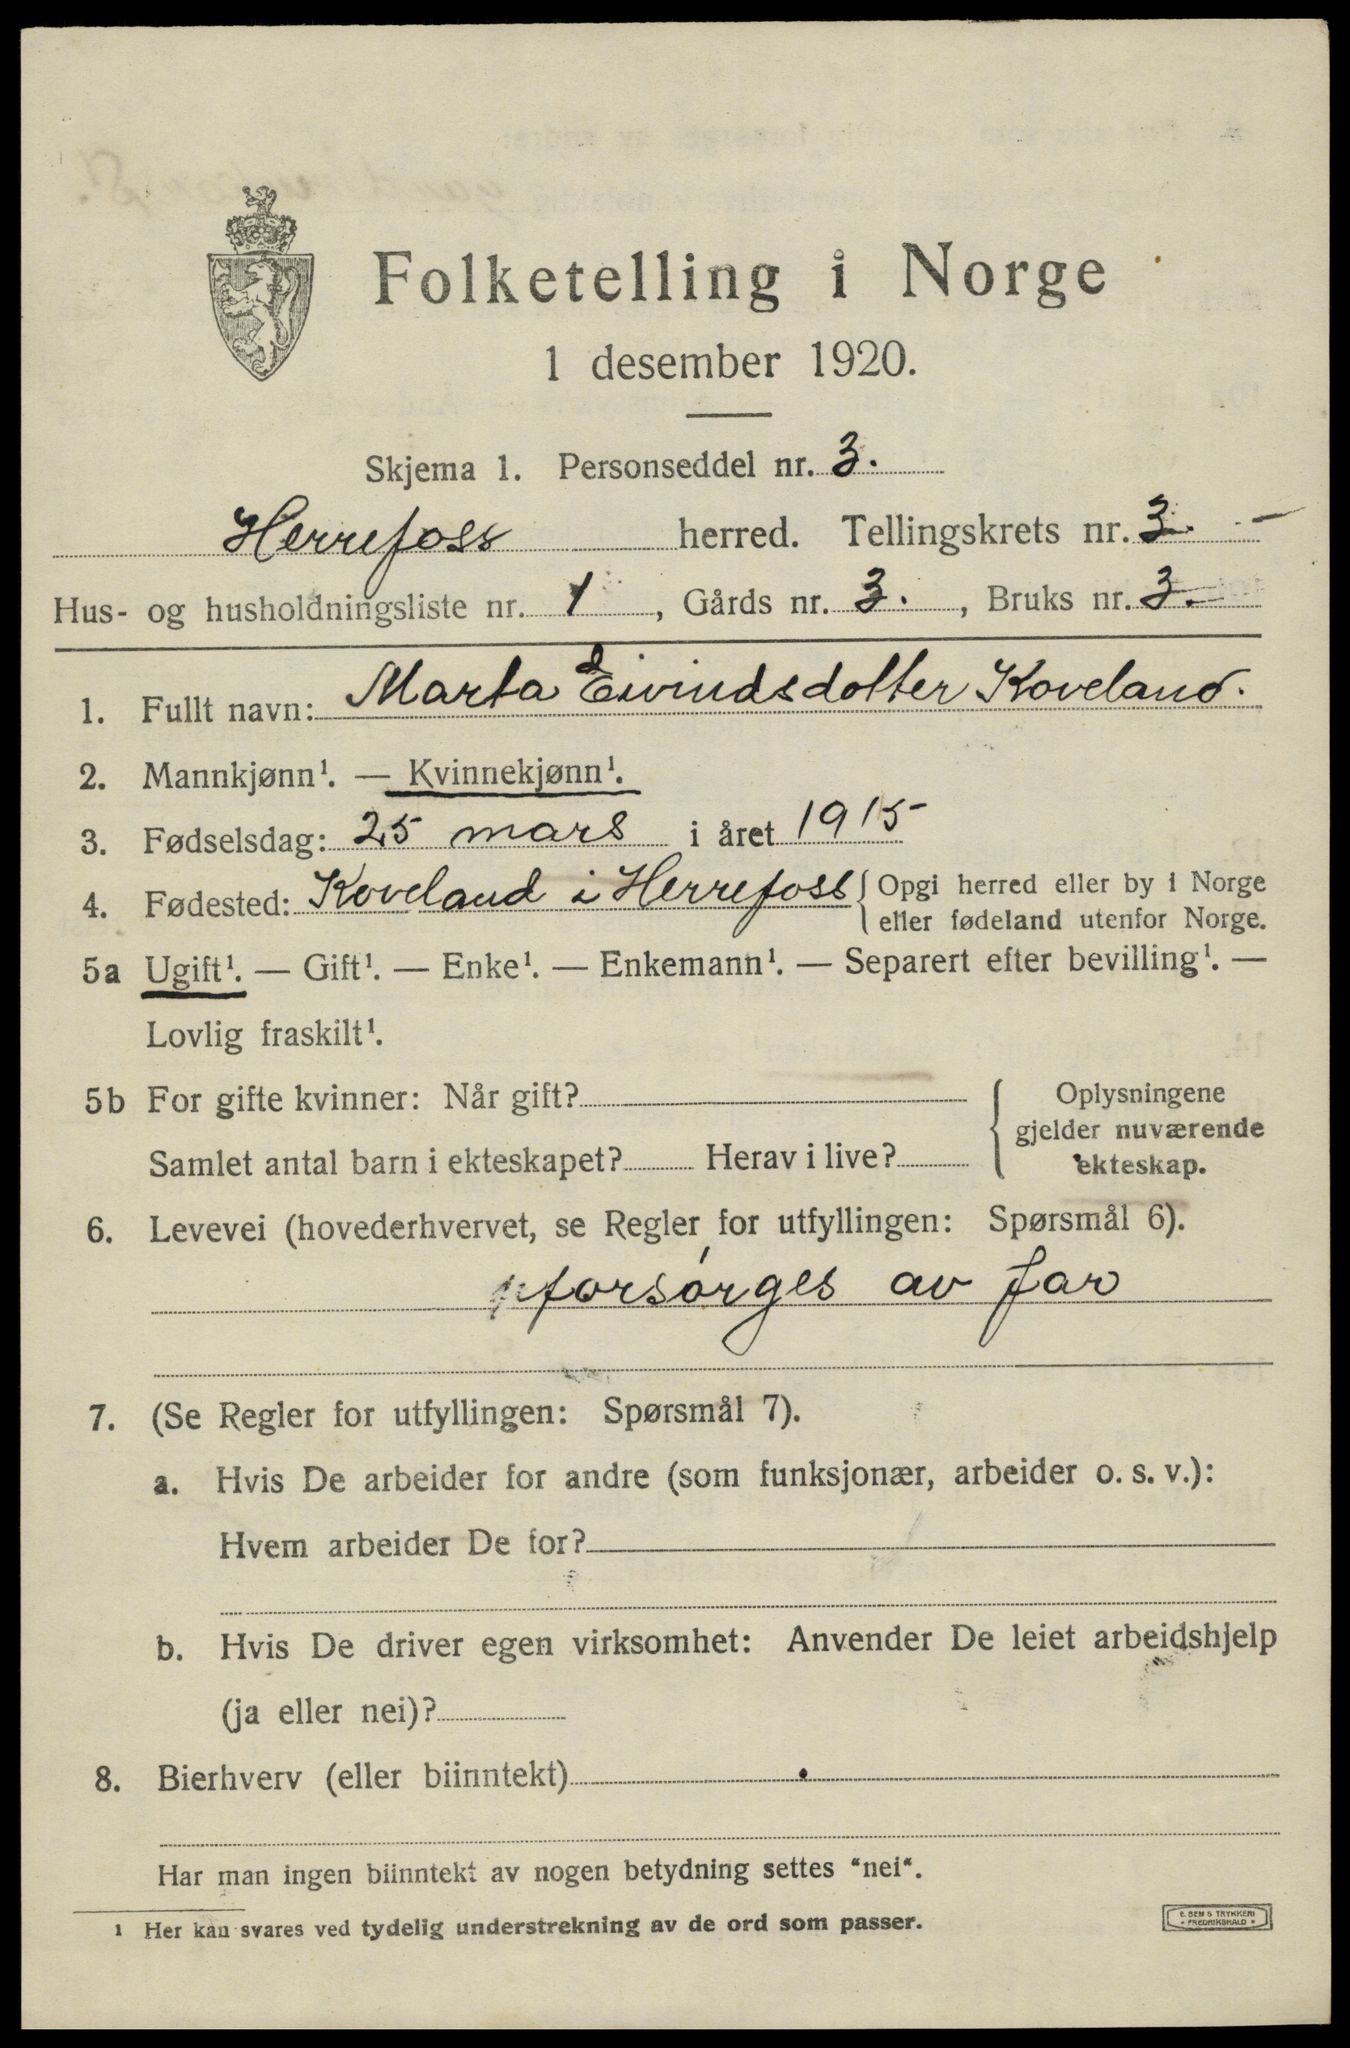 Folketelling i Norge
1 desember 1920.
Skjema 1. Personseddel nr. 3.
Herrefoss herred. Tellingskrets nr. 3. -
Hus- og husholdningsliste nr. 1, Gårds nr. 3., Bruks nr. 3.
1. Fullt navn: Marta Eivindsdotter Koveland.
2. Mannkjønn¹. — Kvinnekjønn¹.
3. Fødselsdag: 25 mars i året 1915
4. Fødested: Koveland i Herrefoss { Opgi herred eller by i Norge
eller fødeland utenfor Norge.
5a Ugift¹. — Gift¹. — Enke¹. — Enkemann¹. — Separert efter bevilling¹. —
Lovlig fraskilt¹.
5b For gifte kvinner: Når gift?
Samlet antal barn i ekteskapet? Herav i live?
{ Oplysningene
gjelder nuværende
ekteskap.
6. Levevei (hovederhvervet, se Regler for utfyllingen: Spørsmål 6).
forsørges av far
7. (Se Regler for utfyllingen: Spørsmål 7).
a. Hvis De arbeider for andre (som funksjonær, arbeider o. s. v.):
Hvem arbeider De for?
b. Hvis De driver egen virksomhet: Anvender De leiet arbeidshjelp
(ja eller nei)?
8. Bierhverv (eller biinntekt)
Har man ingen biinntekt av nogen betydning settes "nei".
¹ Her kan svares ved tydelig understrekning av de ord som passer.
E. SEM'S TRYKKERI
• FREDRIKSHALD •